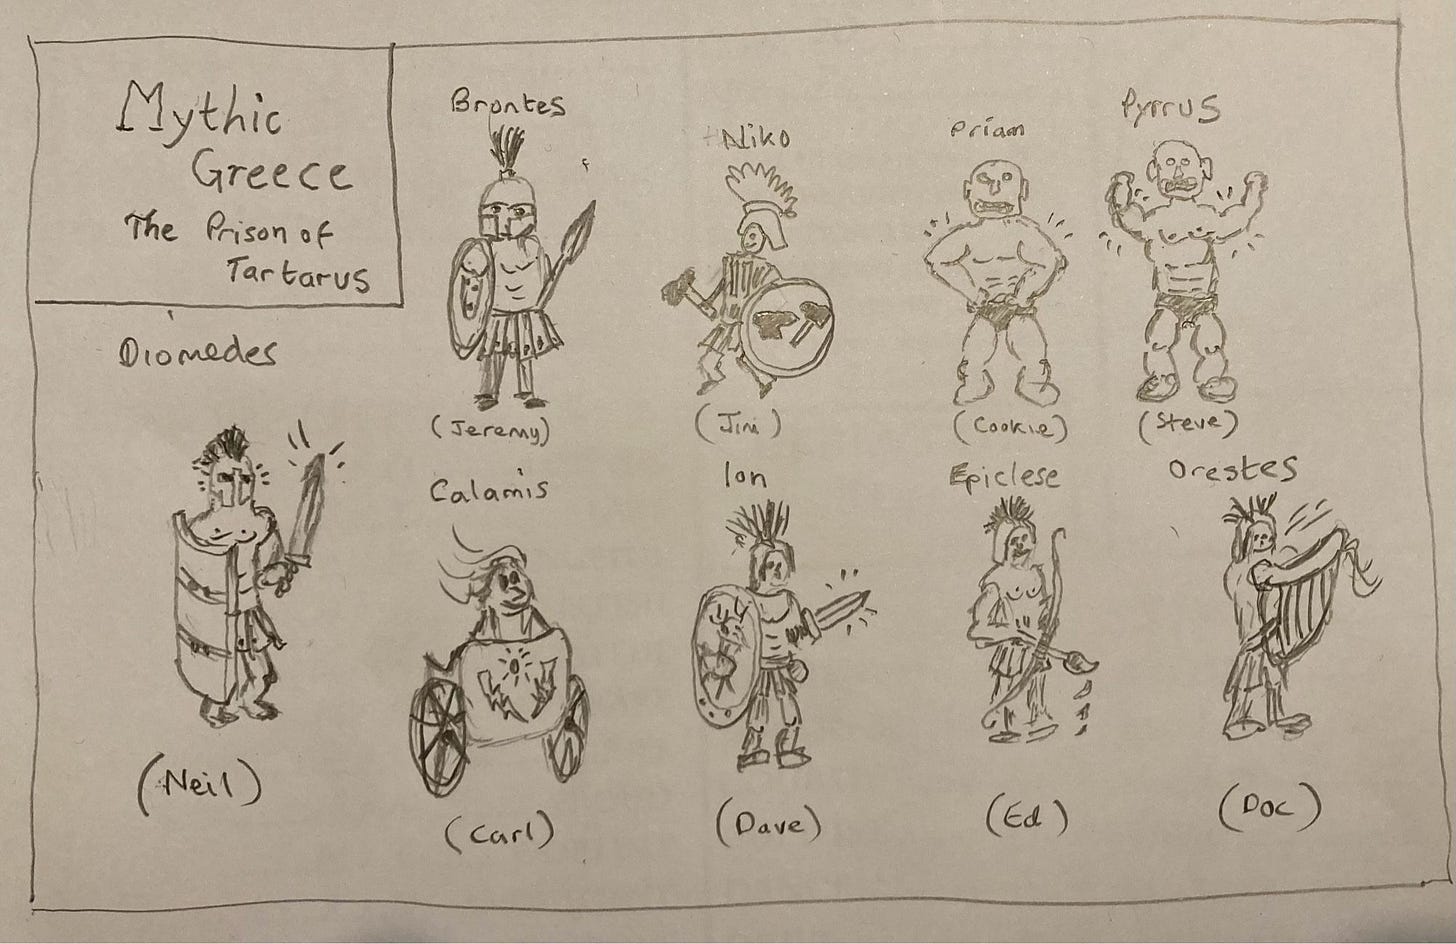 Mythic
Greece
The Prison of
Tartarus
Brontes
Niko
Priam
Pyrrus
(Jeremy)
(Jim)
(Cookie)
(Steve)
Diomedes
Calamis
Ion
Epiclese
Orestes
(Neil)
(Carl)
(Dave)
(Ed)
(Doc)